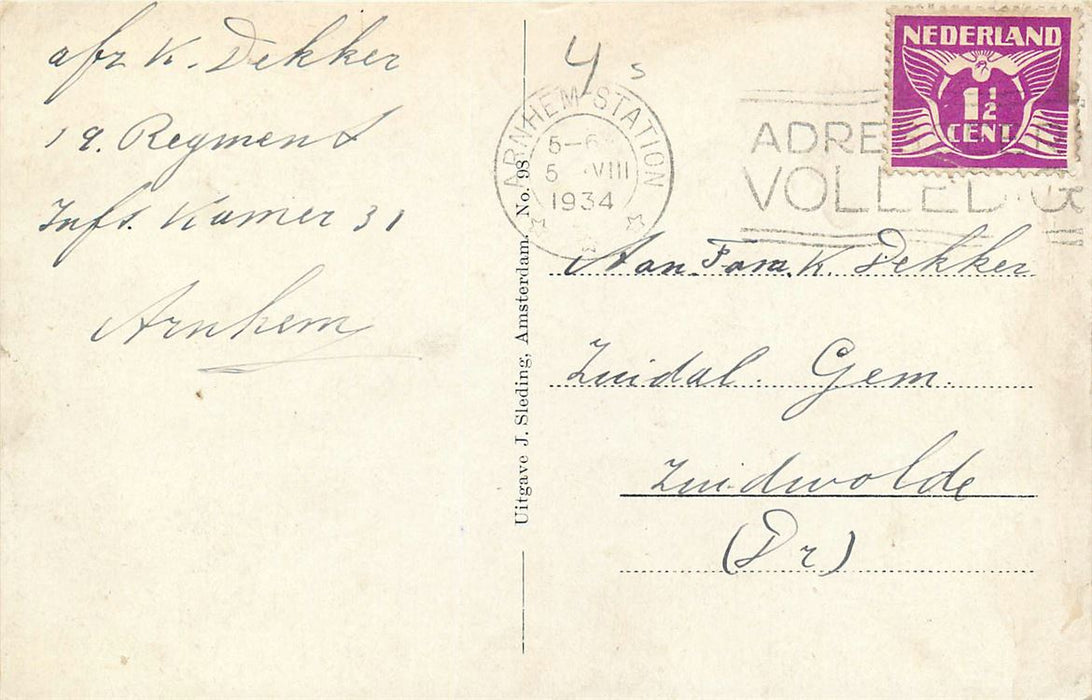 afz K. Dekker
19. Regment
Inft. Kamer 31
Arnhem
Uitgave J. Sleding, Amsterdam. No. 98
4 s
ARNHEM-STATION
5-6
5 VIII
1934
NEDERLAND
1½
CENT
ADRE
VOLLEDIG
Aan Fam. K. Dekker
Zuidal. Gem.
Zuidwolde
(Dr)